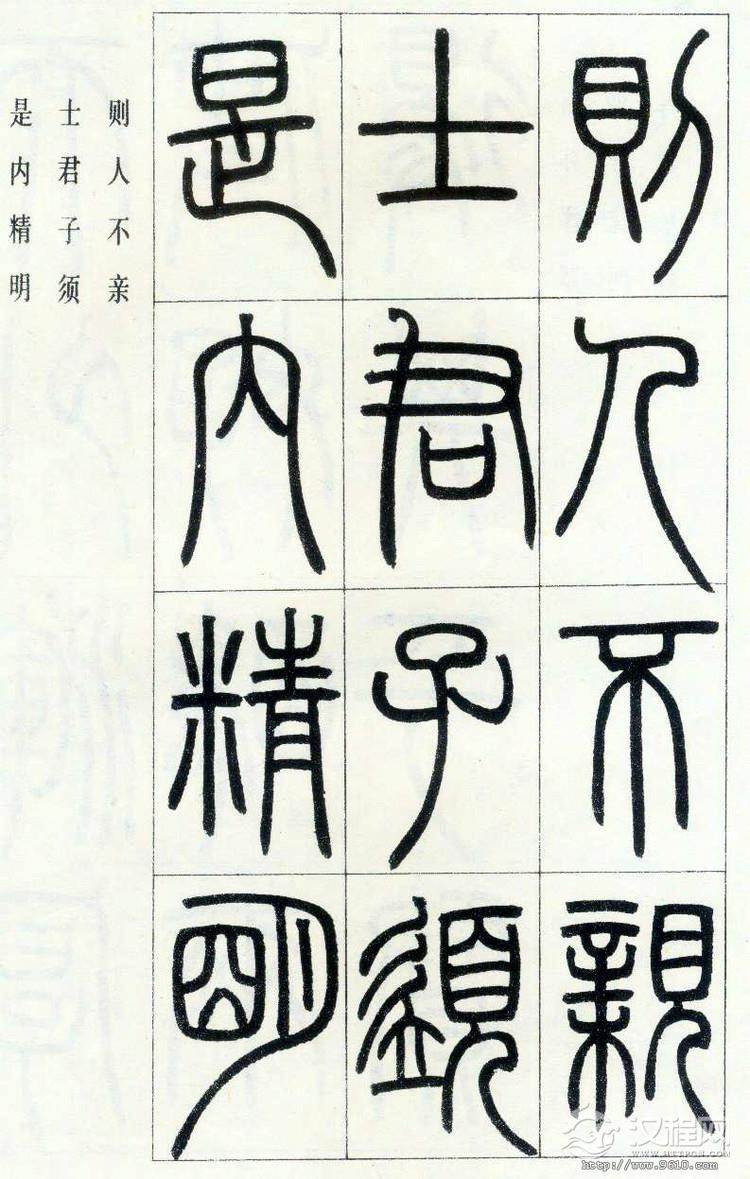 則人不親
士君子須
是内精明
则人不亲
士君子须
是内精明
汉程网
WWW.HTTPCN.COM
http://www.9610.com